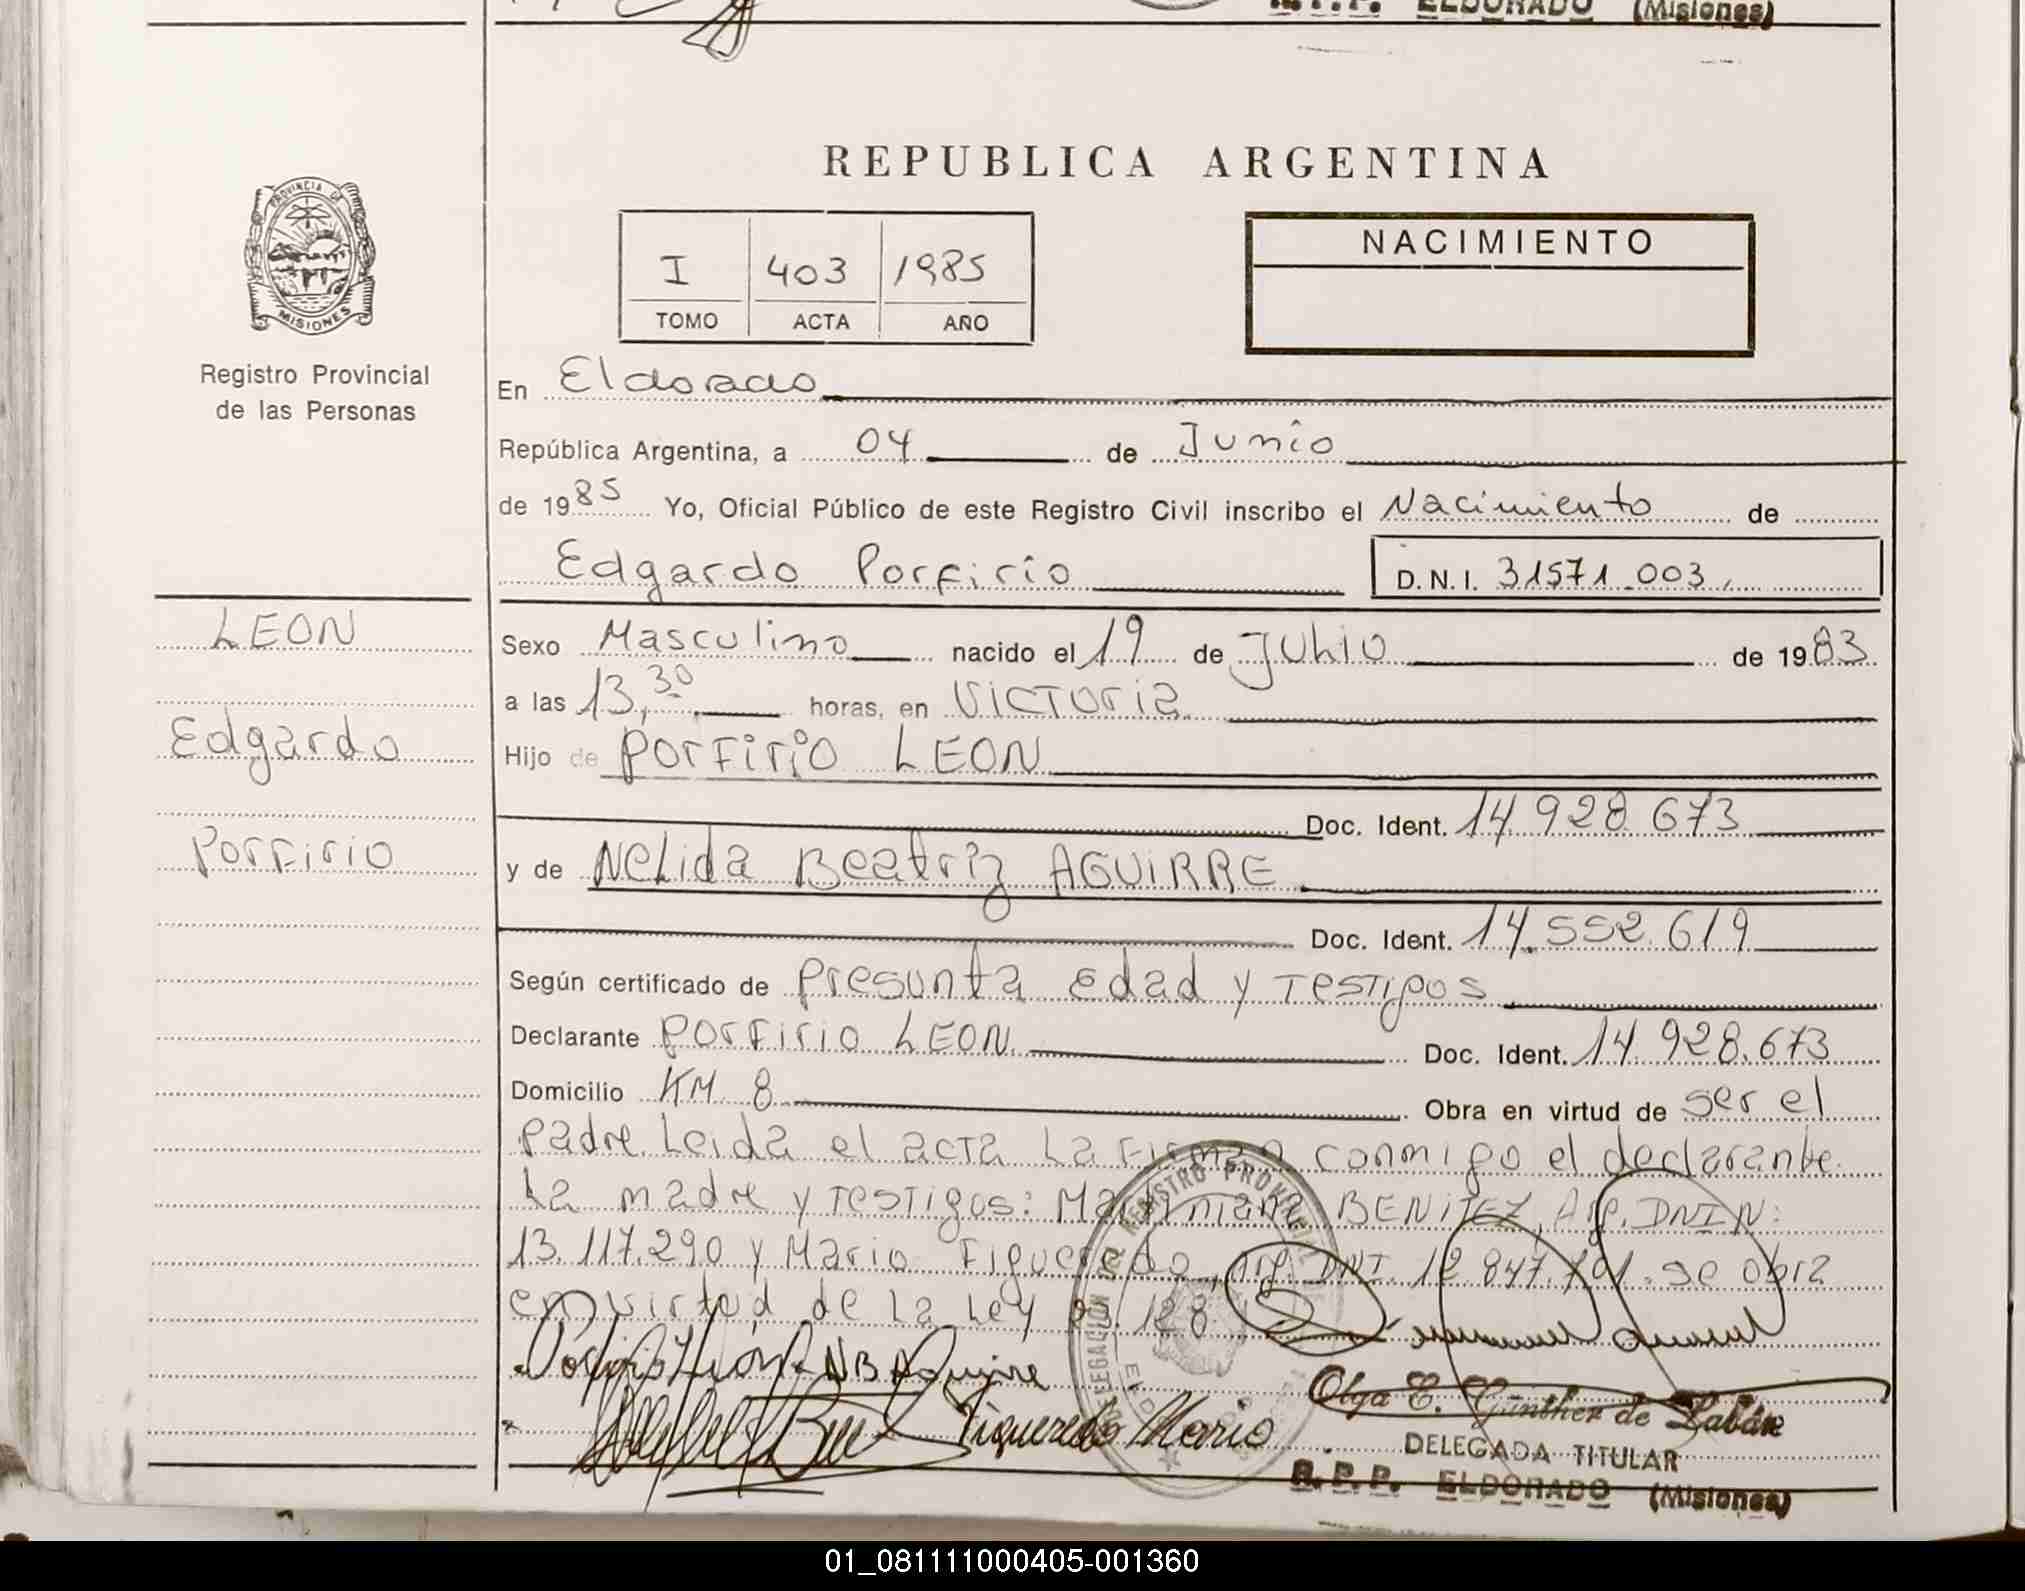 R.P.P. ELDORADO (Misiones)
REPUBLICA ARGENTINA
PROVINCIA DE
MISIONES
Registro Provincial
de las Personas
I 403 1985
TOMO ACTA AÑO
NACIMIENTO
En Eldorado
República Argentina, a 04 de Junio
de 1985 Yo, Oficial Público de este Registro Civil inscribo el Nacimiento de
Edgardo Porfirio D.N.I. 31571.003
LEON
Edgardo
Porfirio
Sexo Masculino nacido el 19 de de 1983
a las 13,30 horas, en Victoria
Hijo de Porfirio LEON
Doc. Ident. 14.928.673
y de Nelida Beatriz AGUIRRE
Doc. Ident. 14.552.619
Según certificado de Presunta edad y Testigos
Declarante Porfirio LEON Doc. Ident. 14.928.673
Domicilio KM 8 Obra en virtud de ser el
padre. Leida el acta la firman conmigo el declarante
la madre y testigos: BENITEZ, Arg. DNI N:
13.117.290 y Mario Figueredo, Arg. DNI. 12.847.791. se obra
en virtud de la Ley 128
NB Aguirre
Figueredo Mario
Olga E. Günther de Labán
DELEGADA TITULAR
R.P.P. ELDORADO (Misiones)
01_081111000405-001360